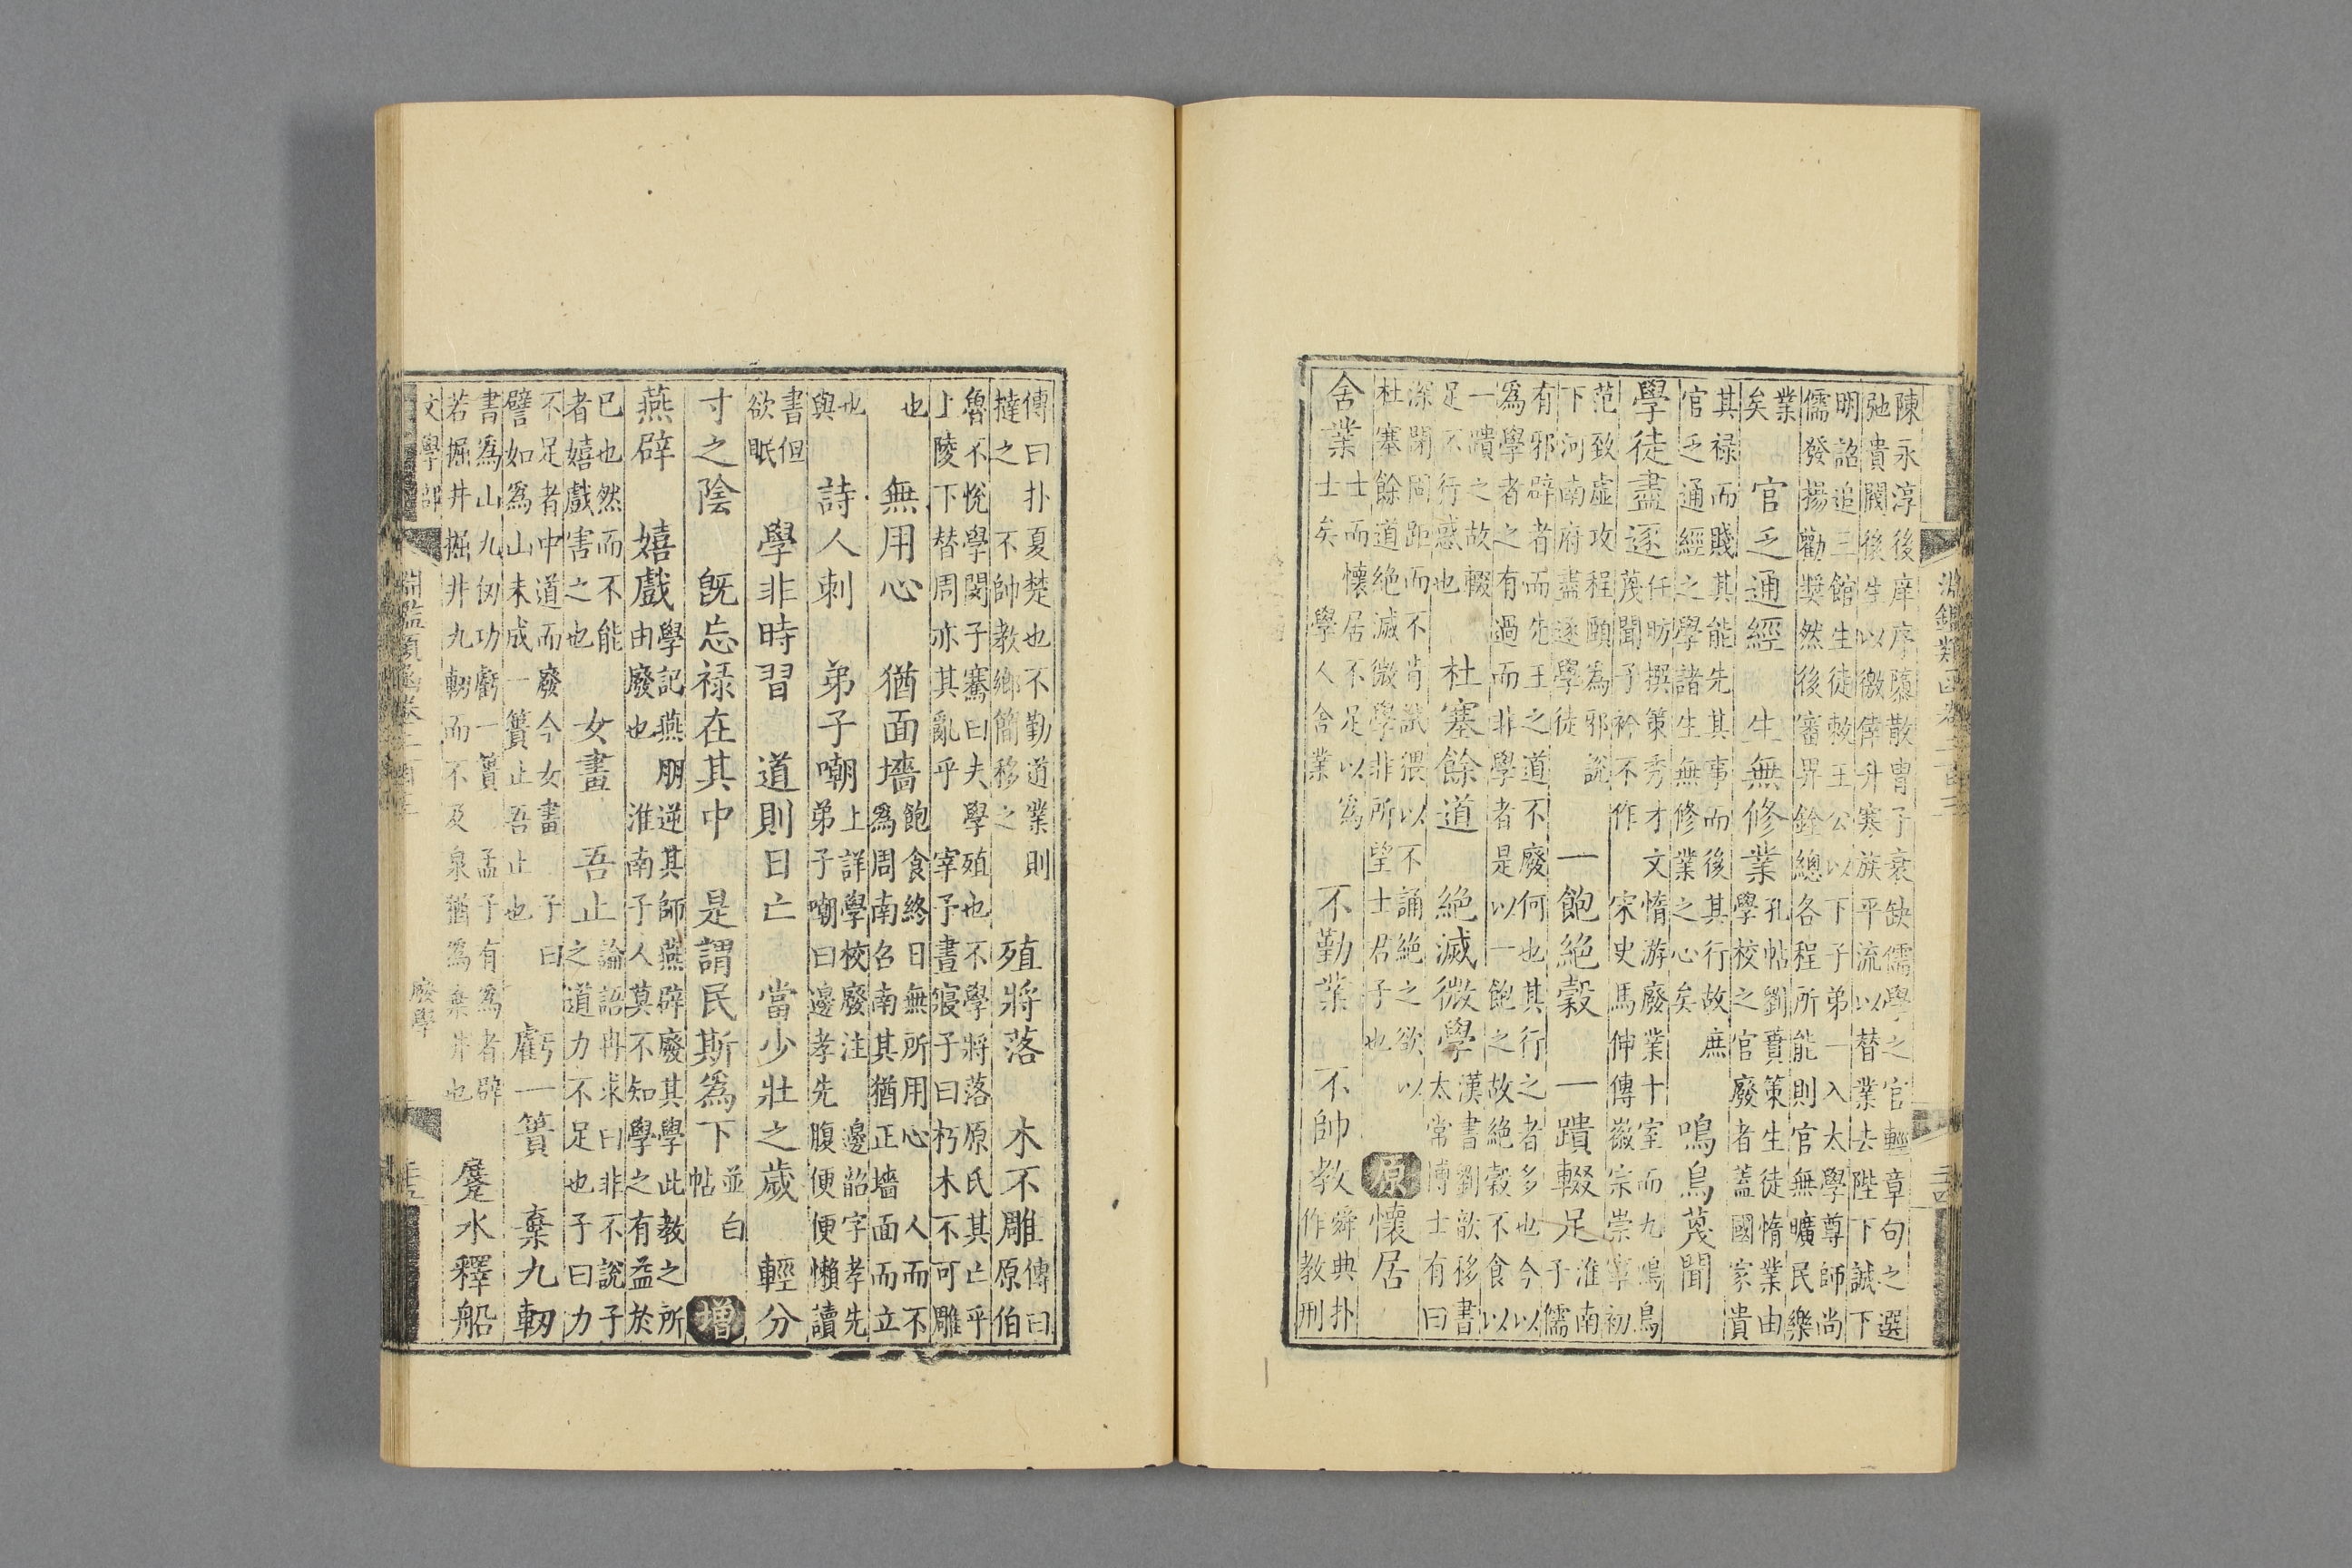 陳永淳後庠序隳散胄子衰缺儒學之官輕章句之選
弛貴閥後生以徼倖升寒族平流以替業去陛下誠下
明詔追三館生徒敕王公以下子弟一入太學尊師尚
儒發揚勸奬然後審畀銓總各程所能則官無曠民樂
業
矣
官乏通經　生無修業
孔帖劉蕡策生徒惰業由
學校之官廢者蓋國家貴
其禄而賤其能先其事而後其行故庶
官乏通經之學諸生無修業之心矣
鳴鳥蔑聞
學徒盡逐
任昉撰策秀才文惰游廢業十室而九鳴鳥
蔑聞子衿不作　宋史馬伸傳徽宗崇寧初
范致虛攻程頤爲邪説
下河南府盡逐學徒
一飽絶穀　一蹪輟足
淮南
子儒
有邪辟者而先王之道不廢何也其行之者多也今以
爲學者之有過而非學者是以一飽之故絶穀不食以
一蹪之故輟
足不行惑也
杜塞餘道　絶滅微學
漢書劉歆移書
太常博士有曰
深閉固距而不肯試猥以不誦絶之欲以
杜塞餘道絶滅微學非所望士君子也
原　懷居
舍業
士而懷居不足以爲
士矣　學人舍業
不勤業　不帥教
舜典扑
作教刑
淵鑑類函卷二百三
傳曰扑夏楚也不勤道業則
撻之　不帥教鄉簡移之
殖將落　木不雕
傳曰
原伯
魯不悅學閔子騫曰夫學殖也不學將落原氏其亡乎
上陵下替周亦其亂乎　宰予晝寢子曰朽木不可雕
也
無用心　猶面墻
飽食終日無所用心　人而不
爲周南召南其猶正墻面而立
也
與
詩人刺　弟子嘲
上詳學校廢注　邊韶字孝先
弟子嘲曰邊孝先腹便便懶讀
書但
欲眠
學非時習　道則日亡　當少壯之歲　輕分
寸之陰　既忘禄在其中　是謂民斯爲下
並白
帖
增
燕辟　嬉戲
學記燕朋逆其師燕辟廢其學此教之所
由廢也　淮南子人莫不知學之有益於
已也然而不能
者嬉戲害之也
女畫　吾止
論語冉求曰非不說子
之道力不足也子曰力
不足者中道而廢今女畫　子曰
譬如爲山未成一簣止吾止也
虧一簣　棄九軔
書爲山九仞功虧一簣　孟子有爲者辟
若掘井掘井九軔而不及泉猶爲棄井也
躄水釋船
文學部
淵鑑類函卷二百三
廢學